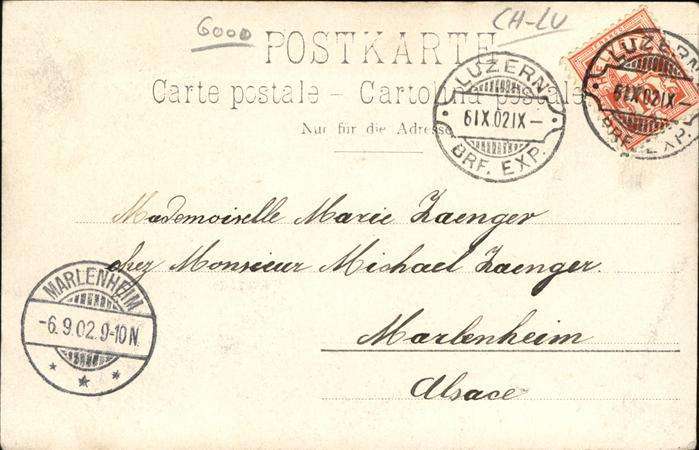 6000
CH-LU
POSTKARTE
Carte postale – Cartolina postale
Nur für die Adresse
LUZERN
6 IX.02 IX –
BRF. EXP.
LUZERN
6 IX.02 IX –
BRF. EXP.
Mademoiselle Marie Zaenger
chez Monsieur Michael Zaenger.
Marlenheim
Alsace
MARLENHEIM
-6.9.02.9-10N.